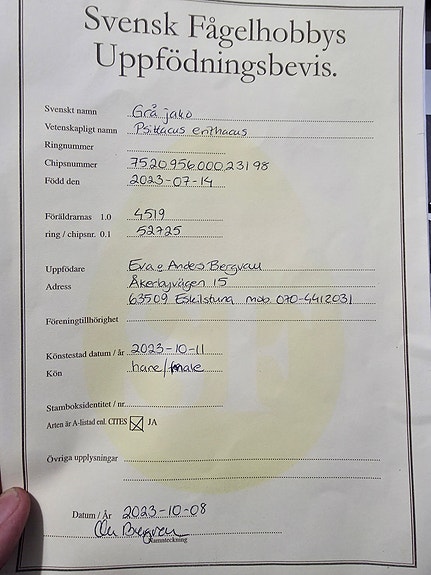 Svensk Fågelhobbys
Uppfödningsbevis.
Svenskt namn Grå jako
Vetenskapligt namn Psittacus erithacus
Ringnummer
Chipsnummer 752095600023198
Född den 2023-07-14
Föräldrarnas 1.0 4519
ring / chipsnr. 0.1 52725
Uppfödare Eva o Anders Bergvall
Adress Åkerbyvägen 15
63509 Eskilstuna mob 070-4412031
Föreningtillhörighet
Könstestad datum / år 2023-10-11
Kön hane/male
Stamboksidentitet / nr.
Arten är A-listad enl. CITES JA
Övriga upplysningar
Datum / År 2023-10-08
Namnteckning